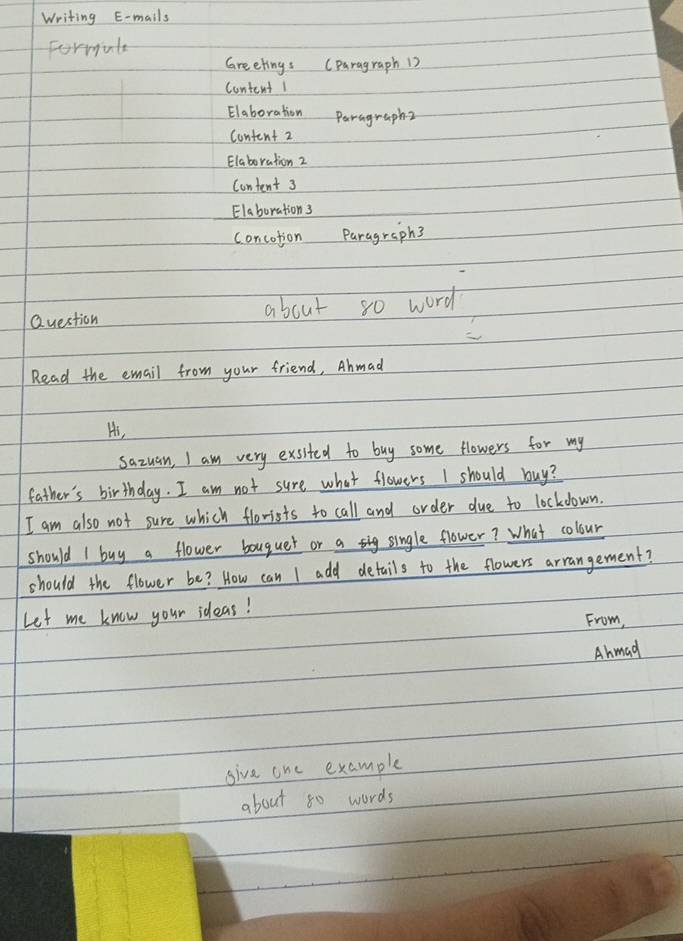 Writing E-mails
Formula
Greetings (Paragraph 1)
Content 1
Elaboration Paragraph 2
Content 2
Elaboration 2
Content 3
Elaboration 3
Concotion Paragraph 3
Question about 80 word
Read the email from your friend, Ahmad
Hi,
Sazuan, I am very exsited to buy some flowers for my
father's birthday. I am not sure what flowers I should buy?
I am also not sure which florists to call and order due to lockdown.
should I buy a flower bouquet or a sig single flower? What colour
should the flower be? How can I add details to the flowers arrangement?
Let me know your ideas!
From,
Ahmad
give one example
about 80 words